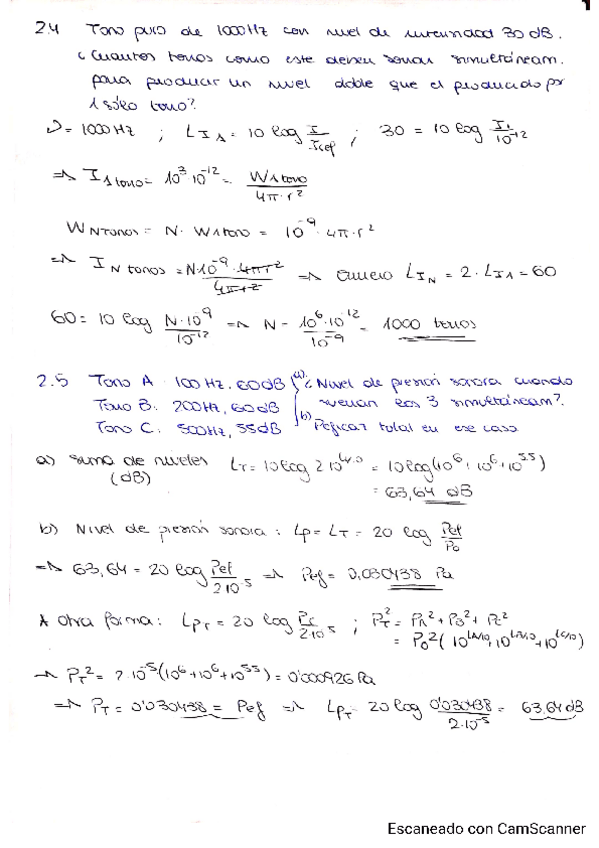 2.4
2.4 Tono puro de 1000Hz con nivel de intensidad 30 dB.
¿Cuántos tonos como este deben sonar simultáneam.
para producir un nivel doble que el producido por
1 sólo tono?
ν = 1000 Hz ; L_I1 = 10 log I/Iref ; 30 = 10 log I1/10^-12
⇒ I1 tono = 10^3·10^-12 = W1 tono/4π·r^2
W N tonos = N· W1 tono = 10^-9 · 4π·r^2
⇒ I N tonos = N·10^-9·4πr^2/4πr^2 ⇒ quiero L_IN = 2·L_I1 = 60
60 = 10 log N·10^9/10^-12 ⇒ N = 10^6·10^-12/10^-9 = 1000 tonos
2.5 Tono A 100 Hz, 60 dB a) ¿Nivel de presión sonora cuando
Tono B: 200Hz, 60 dB suenan los 3 simultáneam?
Tono C: 500Hz, 55 dB b) Peficaz total en ese caso
a) suma de niveles L_T = 10 log Σ 10^Li/10 = 10 log (10^6 + 10^6 + 10^5.5)
(dB) = 63,64 dB
b) Nivel de presión sonora : Lp = L_T = 20 log Pef/Po
⇒ 63,64 = 20 log Pef/2·10^-5 ⇒ Pef = 0,030438 Pa
otra forma: L_PT = 20 log PT/2·10^-5 ; P_T^2 = P_A^2 + P_B^2 + P_C^2
= Po^2 (10^LA/10 + 10^LB/10 + 10^LC/10)
→ P_T^2 = 2·10^-5 (10^6 + 10^6 + 10^5.5) = 0'000926 Pa
⇒ P_T = 0'030438 = Pef ⇒ L_PT = 20 log 0'030438/2·10^-5 = 63.64 dB
Escaneado con CamScanner